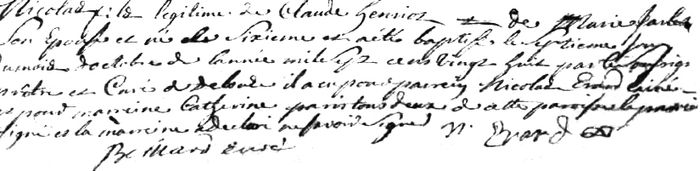 Nicolas fils legitime de Claude Henriot et de Marie
son Epouse est né le sixieme et a été baptisé le septieme jour
du mois d'octobre de l'année mile sept cens vingt huit par le
prêtre et Curé de il a eu pour parrein Nicolas Erard
et pour mareine Catherine tous deux de cette paroisse le parein
signé et la mareine a declaré ne savoir signer N. Erard
curé